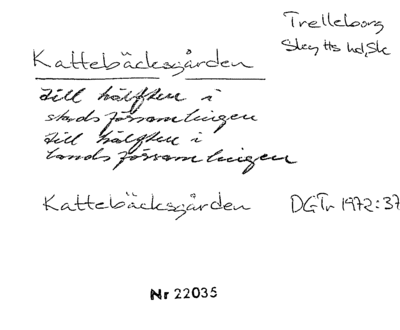 Trelleborg
Skytts hd, Sk
Kattebäcksgården
till hälften i
stadsförsamlingen
till hälften i
landsförsamlingen
Kattebäcksgården DGTr 1972:37
Nr 22035